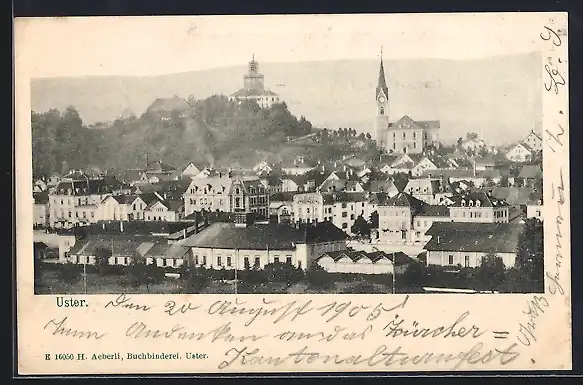 Uster.
Den 20 August 1905!
Zum Andenken ans das Zürcher =
Kantonalturnfest.
E 16050 H. Aeberli, Buchbinderei, Uster.